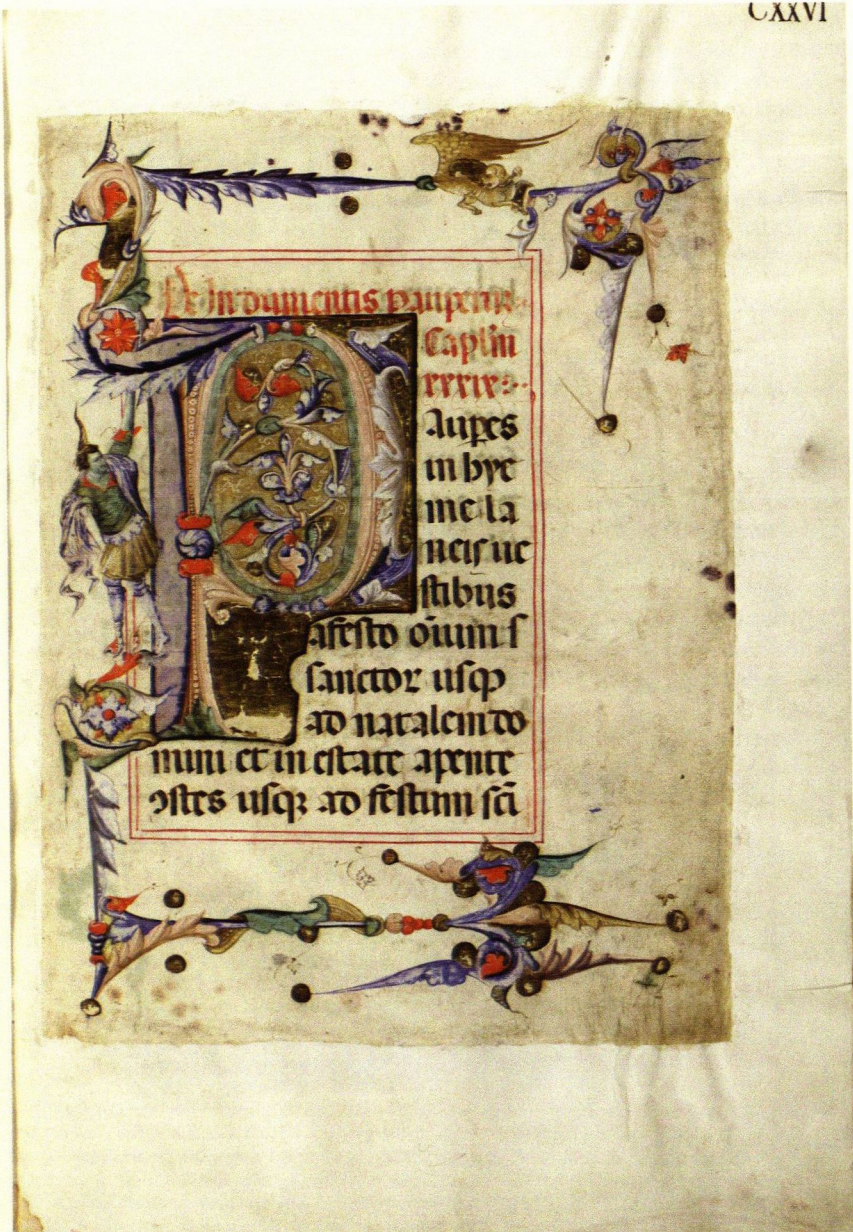 CXXVI
De Indumentis pauperum
Caplm
xxxix:
Aupes
in hye
me la
neis ue
stibus
a festo oium s
sanctor usqp
ad natalem do
mini et in estate a pente
ↄstes usqꝫ ad festum sci